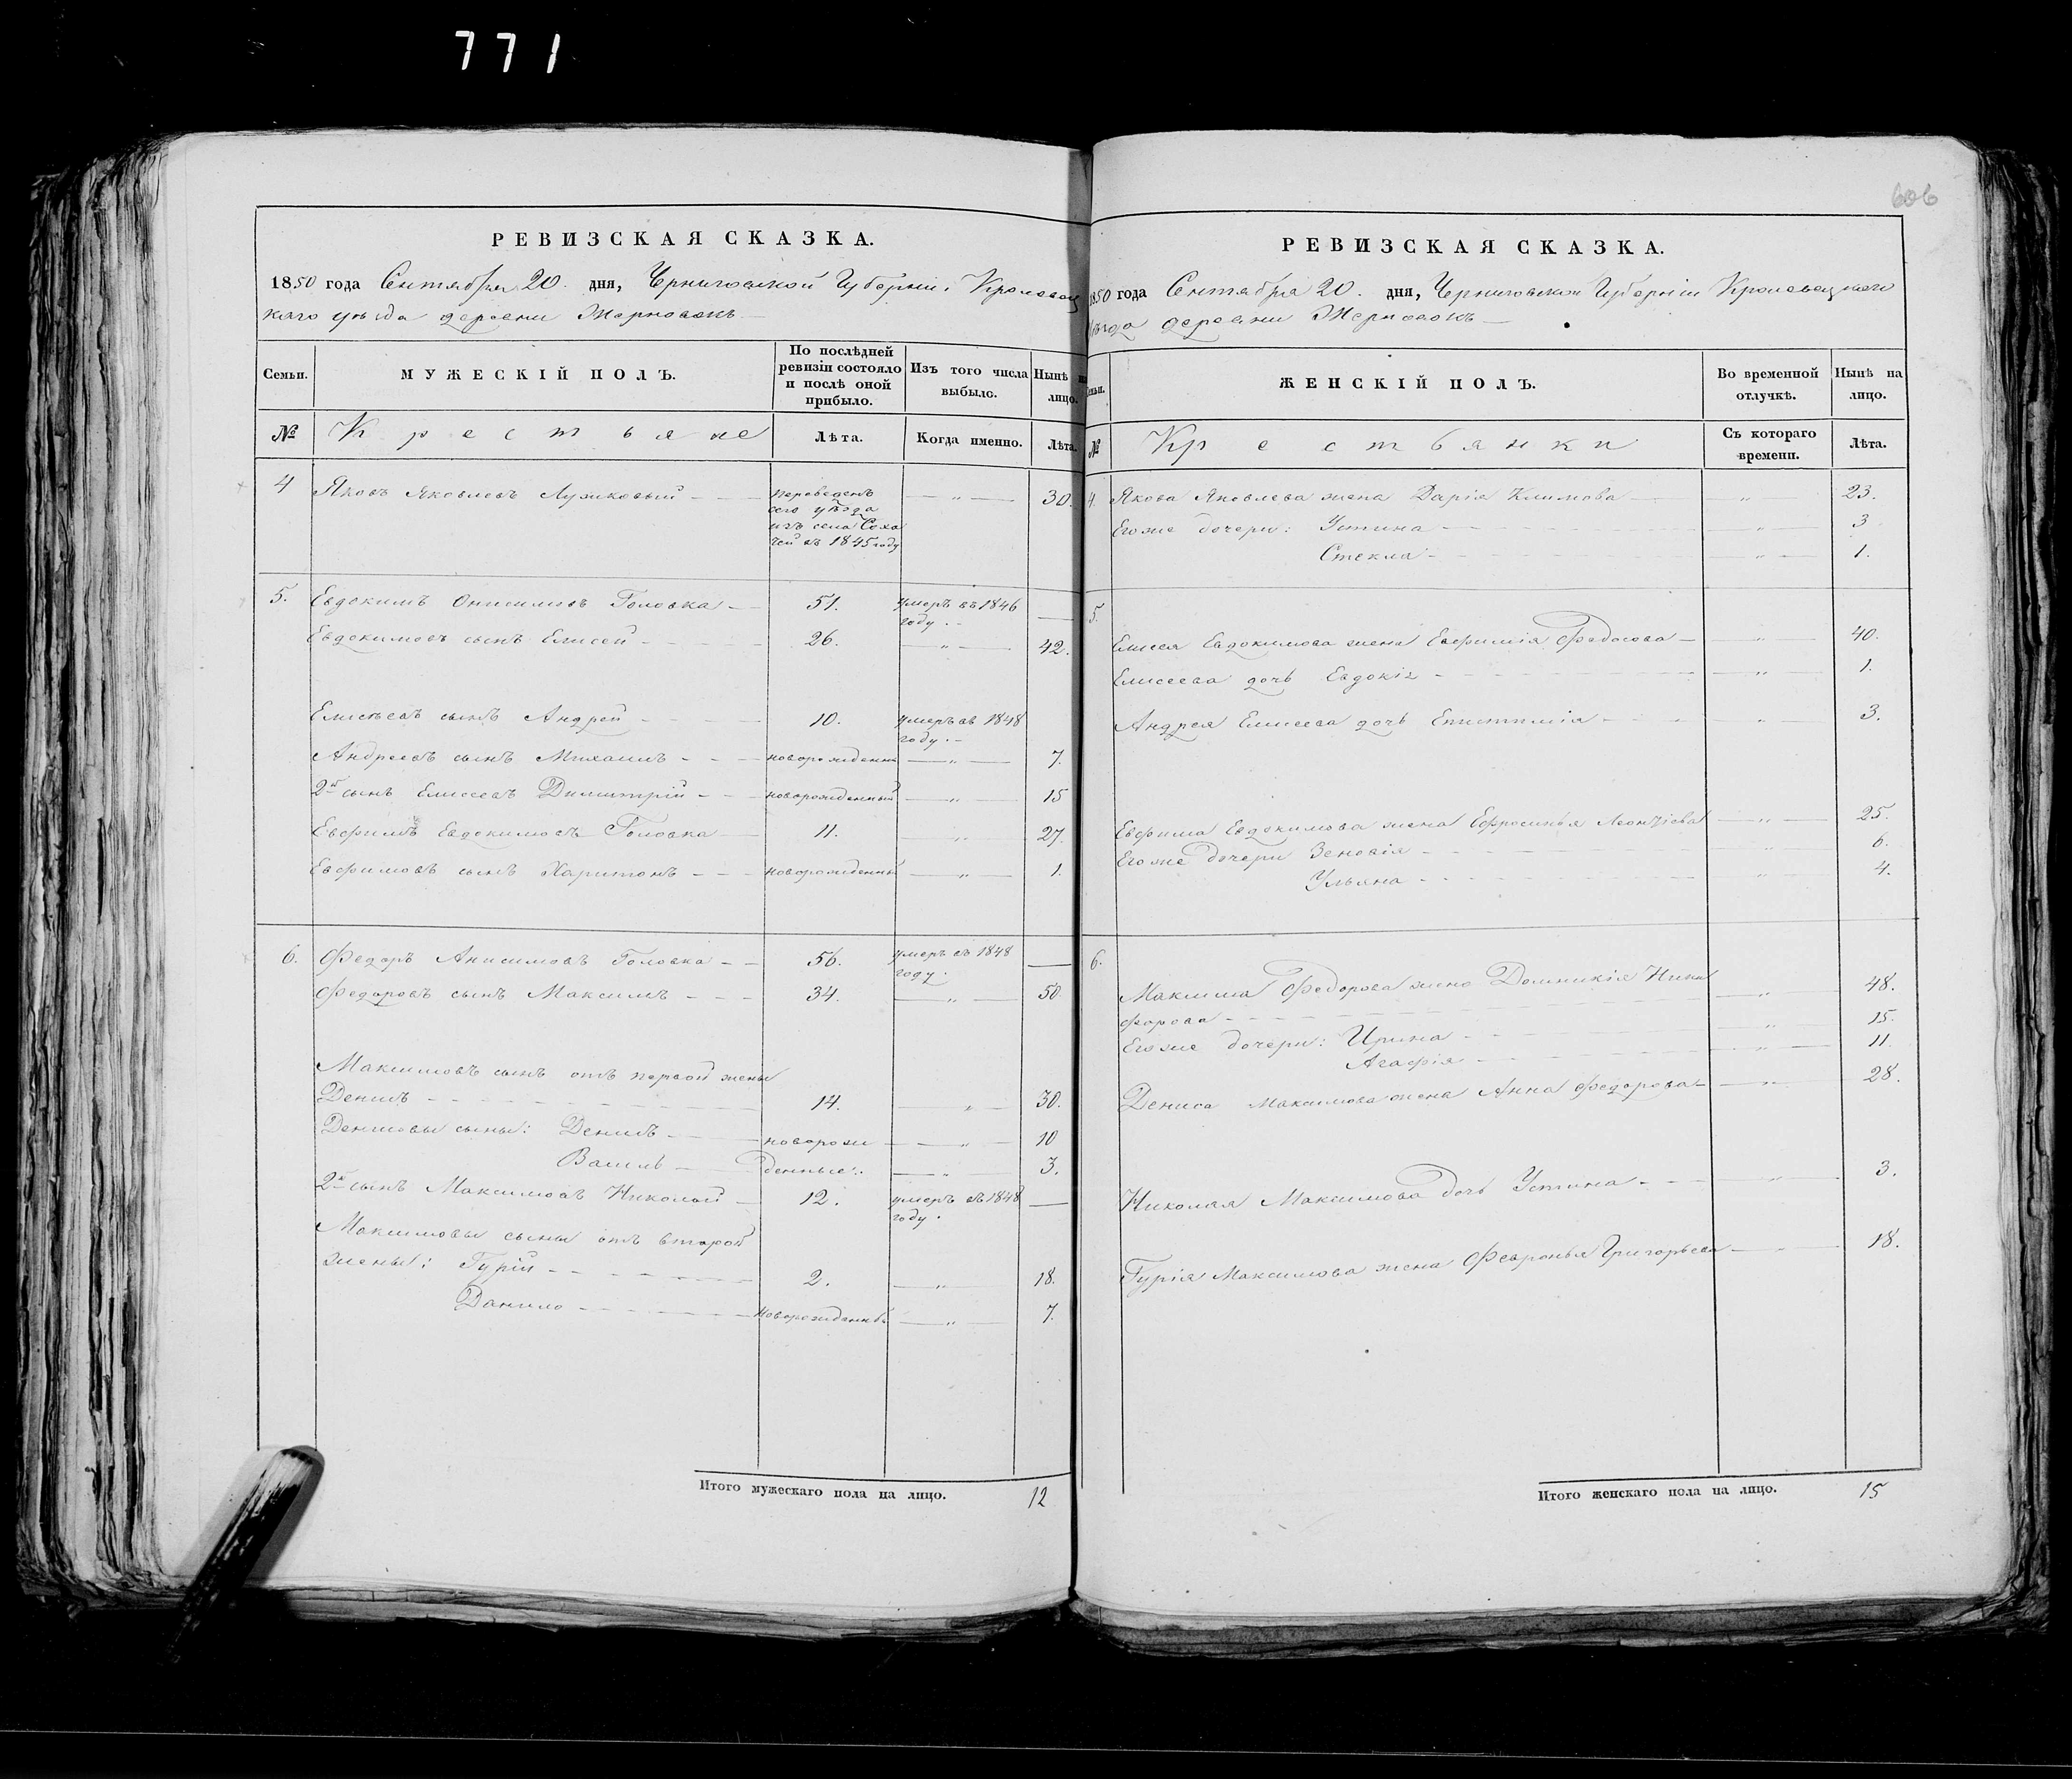 771
606
РЕВИЗСКАЯ СКАЗКА.
1850 года Сентября 20. дня, Черниговской Губерніи Кролевец
каго уѣзда деревни Жерновокъ
Семьи.
МУЖЕСКІЙ ПОЛЪ.
По послѣдней ревизіи состояло и послѣ оной прибыло.
Изъ того числа выбыло.
Нынѣ на лицо.
№
Крестьяне
Лѣта.
Когда именно.
Лѣта.
4 Яковъ Яковлевъ переведенъ — " — 30.
сего уѣзда
изъ села Соха
чей въ 1845 году
5. Евдокимъ Онисимовъ Головка 51. умеръ въ 1846 —
году.
Евдокимовъ сынъ Елисей 26. — " — 42.
Елисѣевъ сынъ Андрей 10. умеръ въ 1848
году.
Андреевъ сынъ Михаилъ новорожденны — " — 7.
2й сынъ Елисеевъ Димитрій новорожденный — " — 15
Евфимъ Евдокимовъ Головка 11. " 27.
Евфимовъ сынъ Харитонъ новорожденны — " — 1.
6. Федоръ Анисимовъ Головка 56. умеръ въ 1848 —
году.
Федоровъ сынъ Максимъ 34. — " — 50.
Максимовъ сынъ отъ первой жены
Денисъ 14. — " — 30.
Денисовы сыны: Денисъ новорож — " — 10
Василь денные. — " — 3.
2й сынъ Максимовъ Николай 12. умеръ въ 1848 —
году.
Максимовы сыны отъ второй
жены: Гурій 2. — " — 18.
Данило новорожденны — " — 7.
Итого мужескаго пола на лицо. 12
РЕВИЗСКАЯ СКАЗКА.
1850 года Сентября 20. дня, Черниговской Губерніи Кролевецкаго
уѣзда деревни Жерновокъ
Семьи.
ЖЕНСКІЙ ПОЛЪ.
Во временной отлучкѣ.
Нынѣ на лицо.
№
Крестьянки
Съ котораго времени.
Лѣта.
4. Якова Яковлева жена Дарія Климова " 23.
Его же дочери: Устина " 3
Стекла — " — 1.
5.
Елисея Евдокимова жена Евфимія Федосова — " — 40.
Елисеева дочь Евдокія — " — 1.
Андрея Елисеева дочь Епистимія " 3.
Евфима Евдокимова жена Ефросинья Леонтіева — " — 25.
Его же дочери Зеновія " 6.
Ульяна " 4.
6.
Максима Федорова жена Домникія Ники — " — 48.
форова
Его же дочери: Ирина " 15.
Агафія " 11.
Дениса Максимова жена Анна Федорова — " — 28.
Николая Максимова дочь Устина — " — 3.
Гурія Максимова жена Февронья Григорьева — " — 18.
Итого женскаго пола на лицо. 15